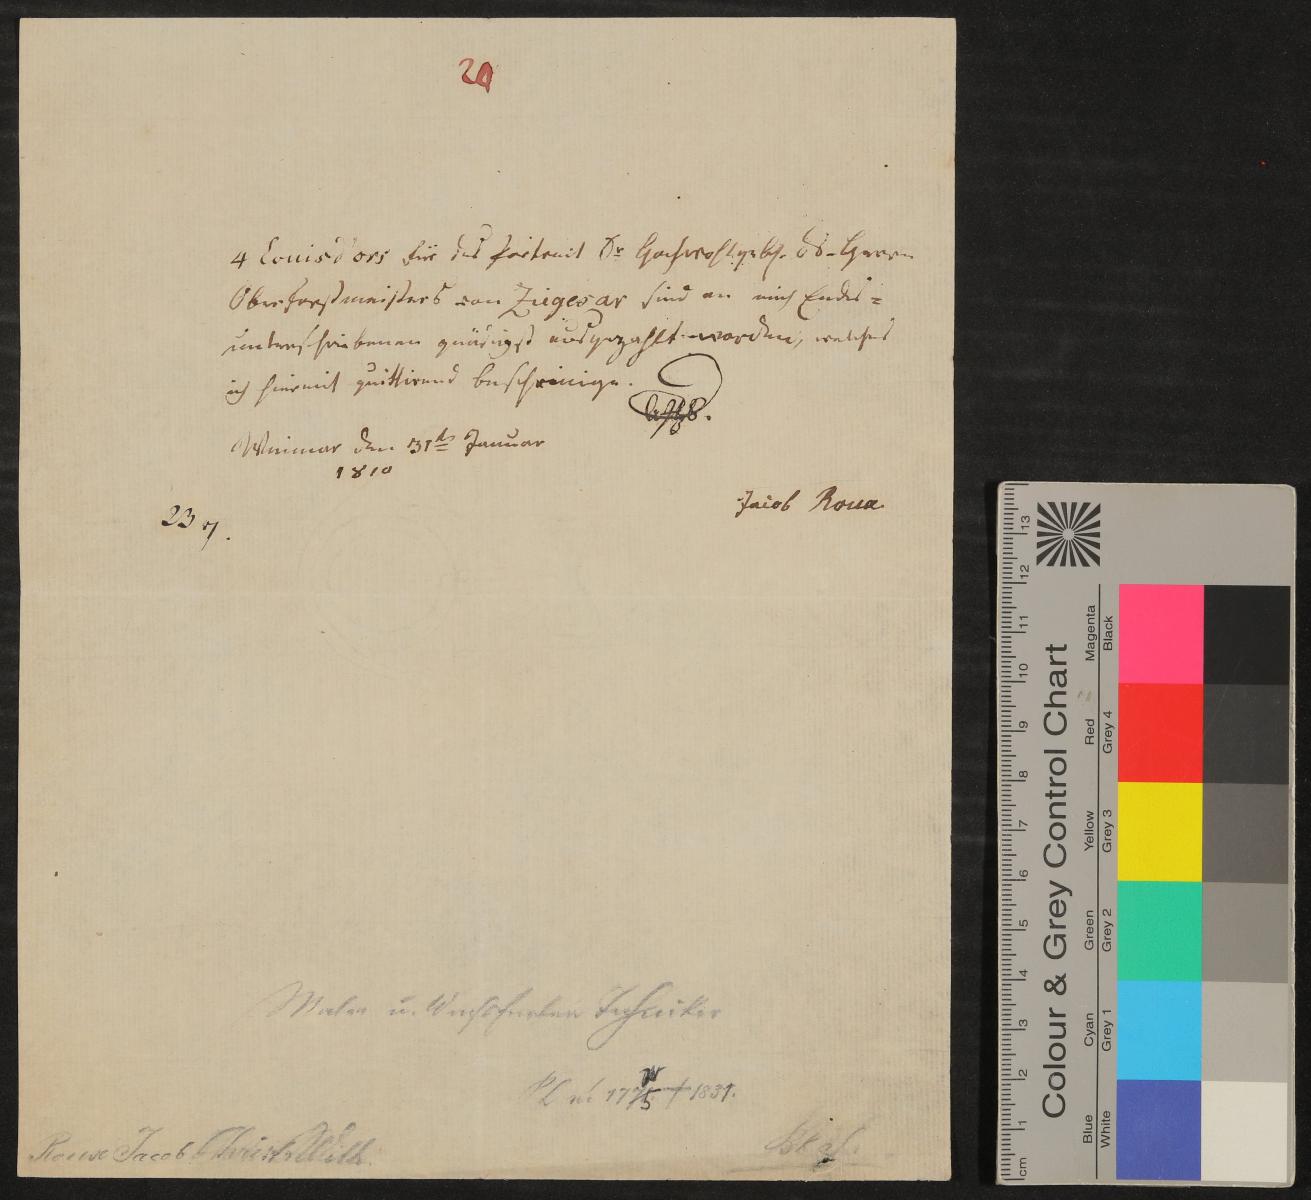 20
4 Louisd'ors für das Portrait Sr Hochwohlgeb. ds. Herrn
Oberforstmeisters von Ziegesar sind an mich Endes=
unterschriebenen gnädigst ausgezahlt worden, welches
ich hiermit quittirend bescheinige.
Weimar den 31ten Januar
1810
Jacob Roux
23
Maler u. Wachsfarben Techniker
1775 † 1831.
Roux Jacob Christ. Wilh.
Colour & Grey Control Chart
Blue Cyan Green Yellow Red Magenta
White Grey 1 Grey 2 Grey 3 Grey 4 Black
cm 1 2 3 4 5 6 7 8 9 10 11 12 13